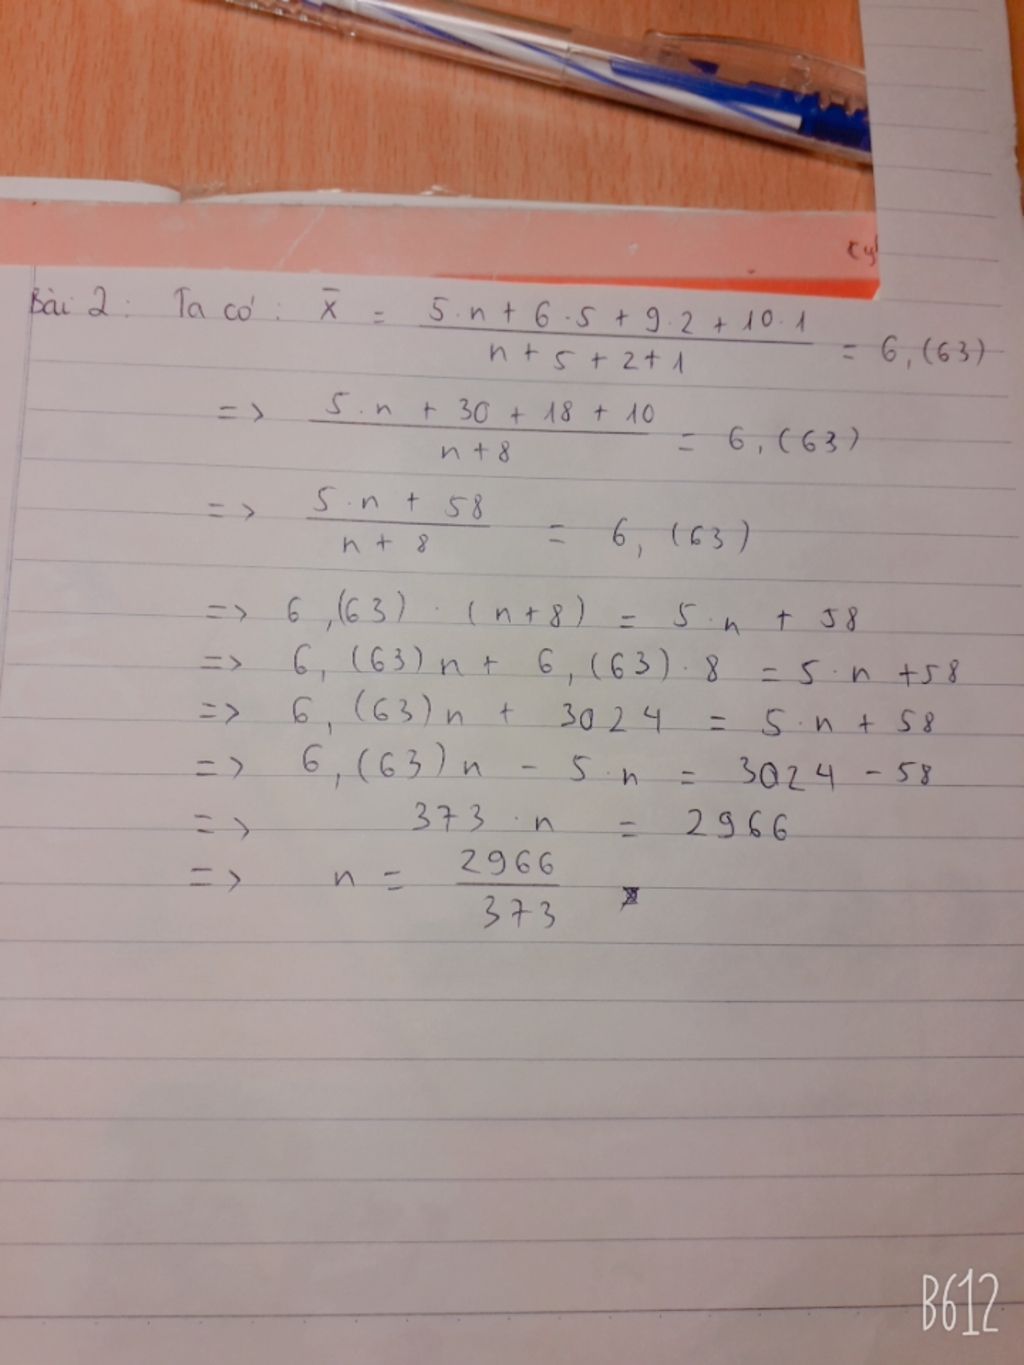 Bài 2: Ta có: x̄ = (5.n + 6.5 + 9.2 + 10.1)/(n + 5 + 2 + 1) = 6,(63)
=> (5.n + 30 + 18 + 10)/(n + 8) = 6,(63)
=> (5.n + 58)/(n + 8) = 6,(63)
=> 6,(63) . (n + 8) = 5.n + 58
=> 6,(63)n + 6,(63).8 = 5.n + 58
=> 6,(63)n + 3024 = 5.n + 58
=> 6,(63)n - 5.n = 3024 - 58
=> 373.n = 2966
=> n = 2966/373
B612